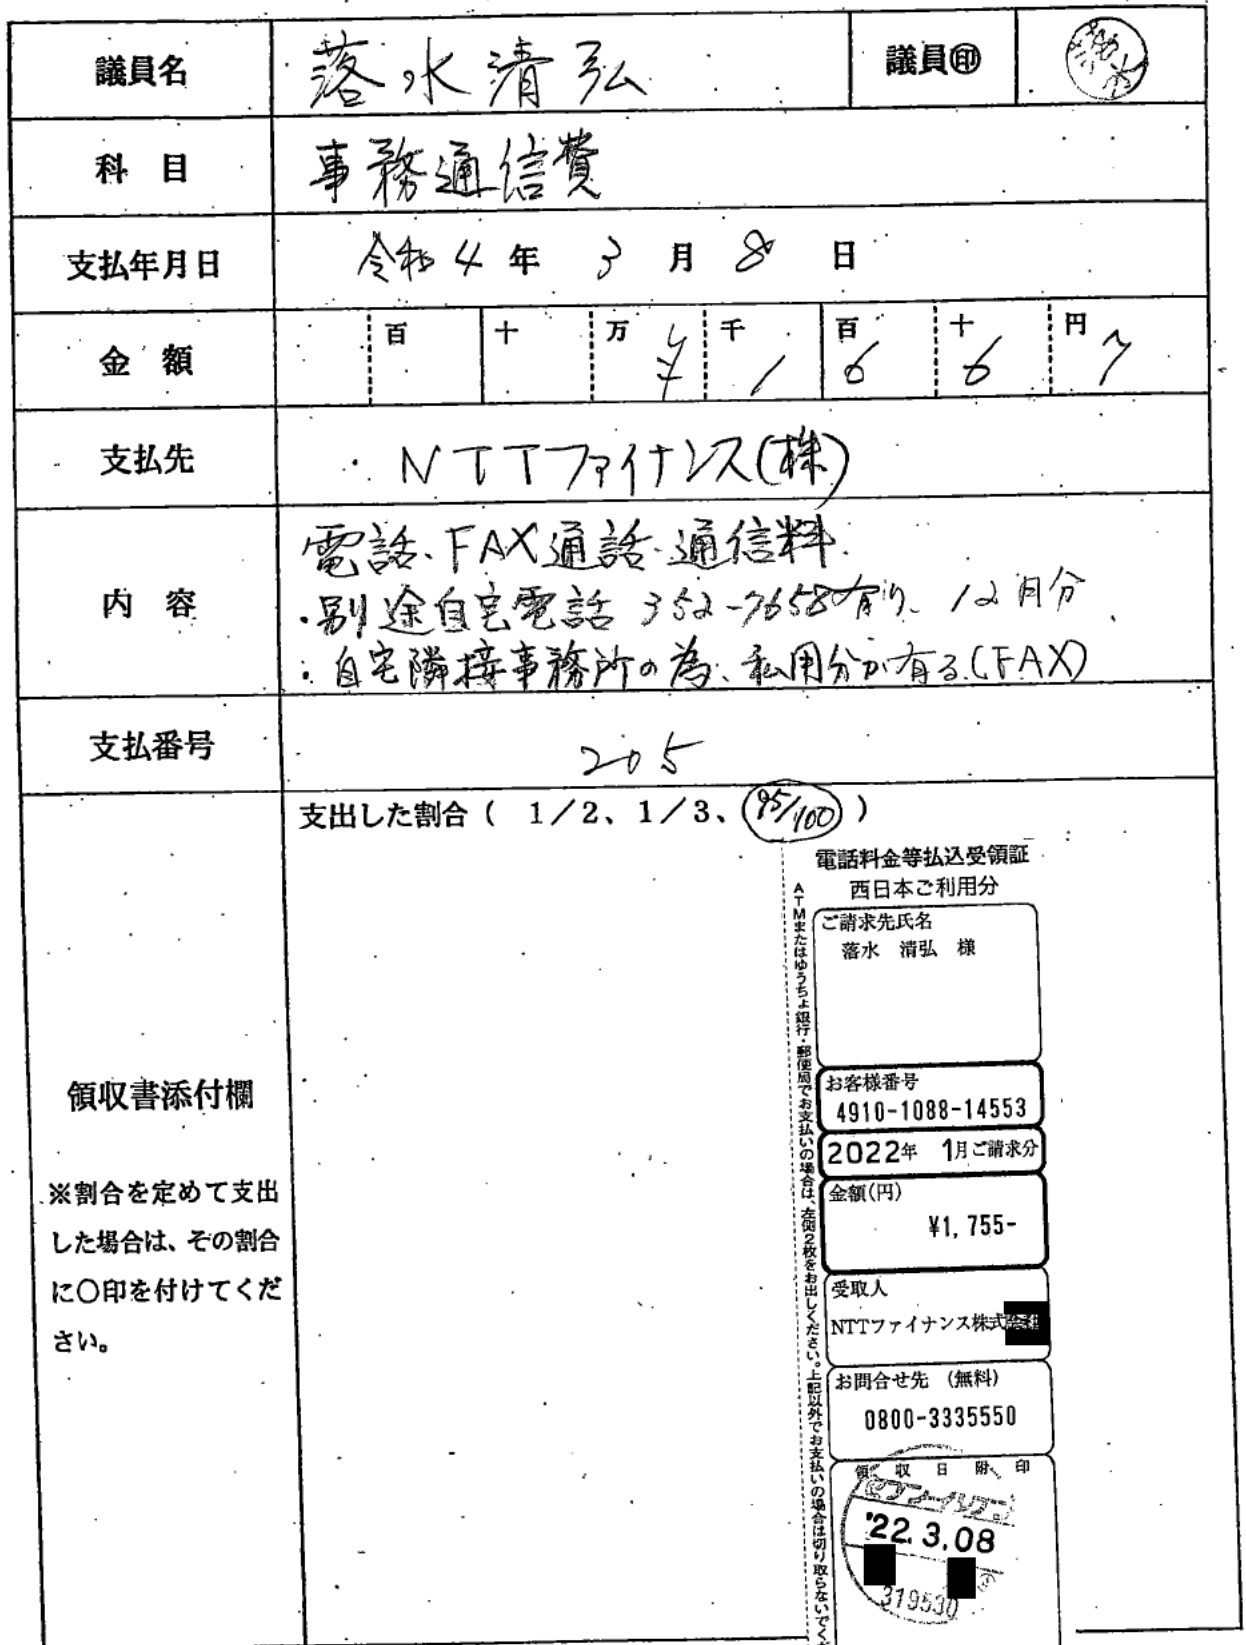 議員名 落水清弘 議員㊞
科目 事務通信費
支払年月日 令和4年3月8日
金額 百 十 万 ¥ 千 1 百 6 十 6 円 7
支払先 NTTファイナンス(株)
内容 電話、FAX通話・通信料
・別途自宅電話 352-7658有り、12月分
・自宅隣接事務所の為、私用分が有る(FAX)
支払番号 205
支出した割合( 1/2、1/3、95/100 )
領収書添付欄
※割合を定めて支出
した場合は、その割合
に○印を付けてくだ
さい。
ATMまたはゆうちょ銀行・郵便局でお支払いの場合は、左側2枚をお出しください。上記以外でお支払いの場合は切り取らないでくだ
電話料金等払込受領証
西日本ご利用分
ご請求先氏名
落水 清弘 様
お客様番号
4910-1088-14553
2022年 1月ご請求分
金額(円)
¥1,755-
受取人
NTTファイナンス株式
お問合せ先 (無料)
0800-3335550
領収日附印
セブン-イレブン
'22.3.08
319530